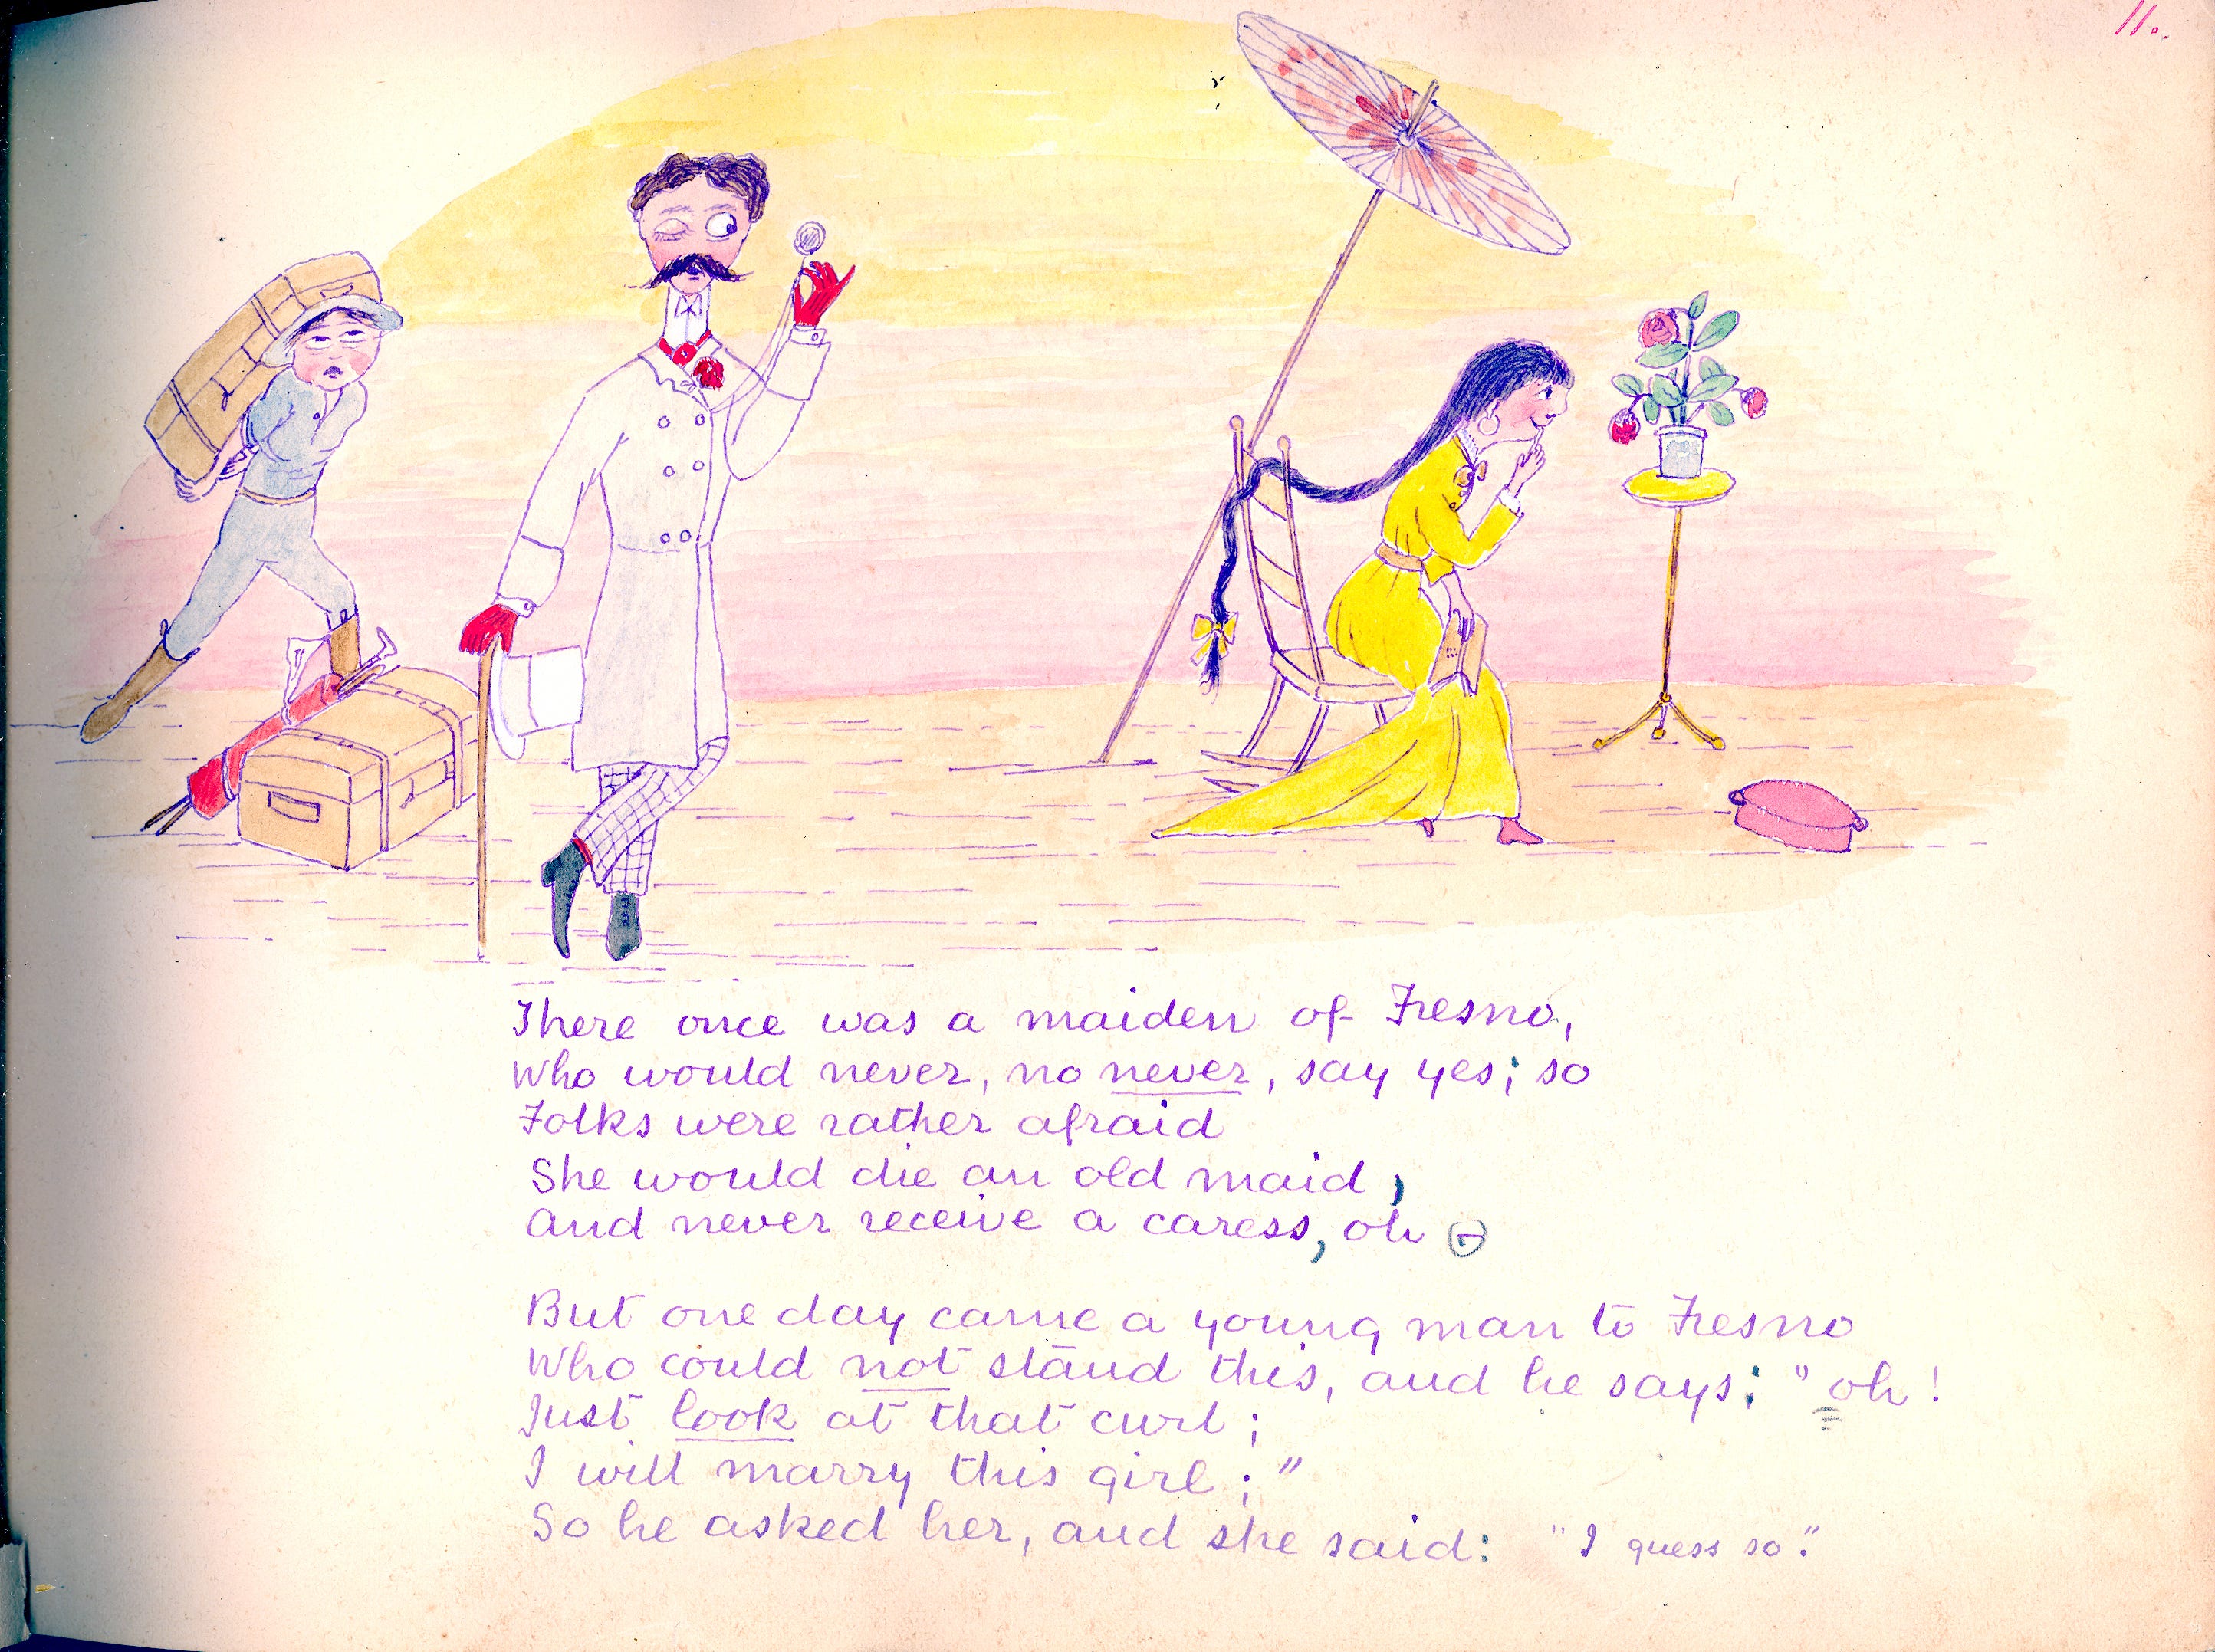 11.
There once was a maiden of Fresno,
Who would never, no never, say yes; so
Folks were rather afraid
She would die an old maid,
And never receive a caress, oh
But one day came a young man to Fresno
Who could not stand this, and he says: "oh!
Just look at that curl;
I will marry this girl;"
So he asked her, and she said: "I guess so."